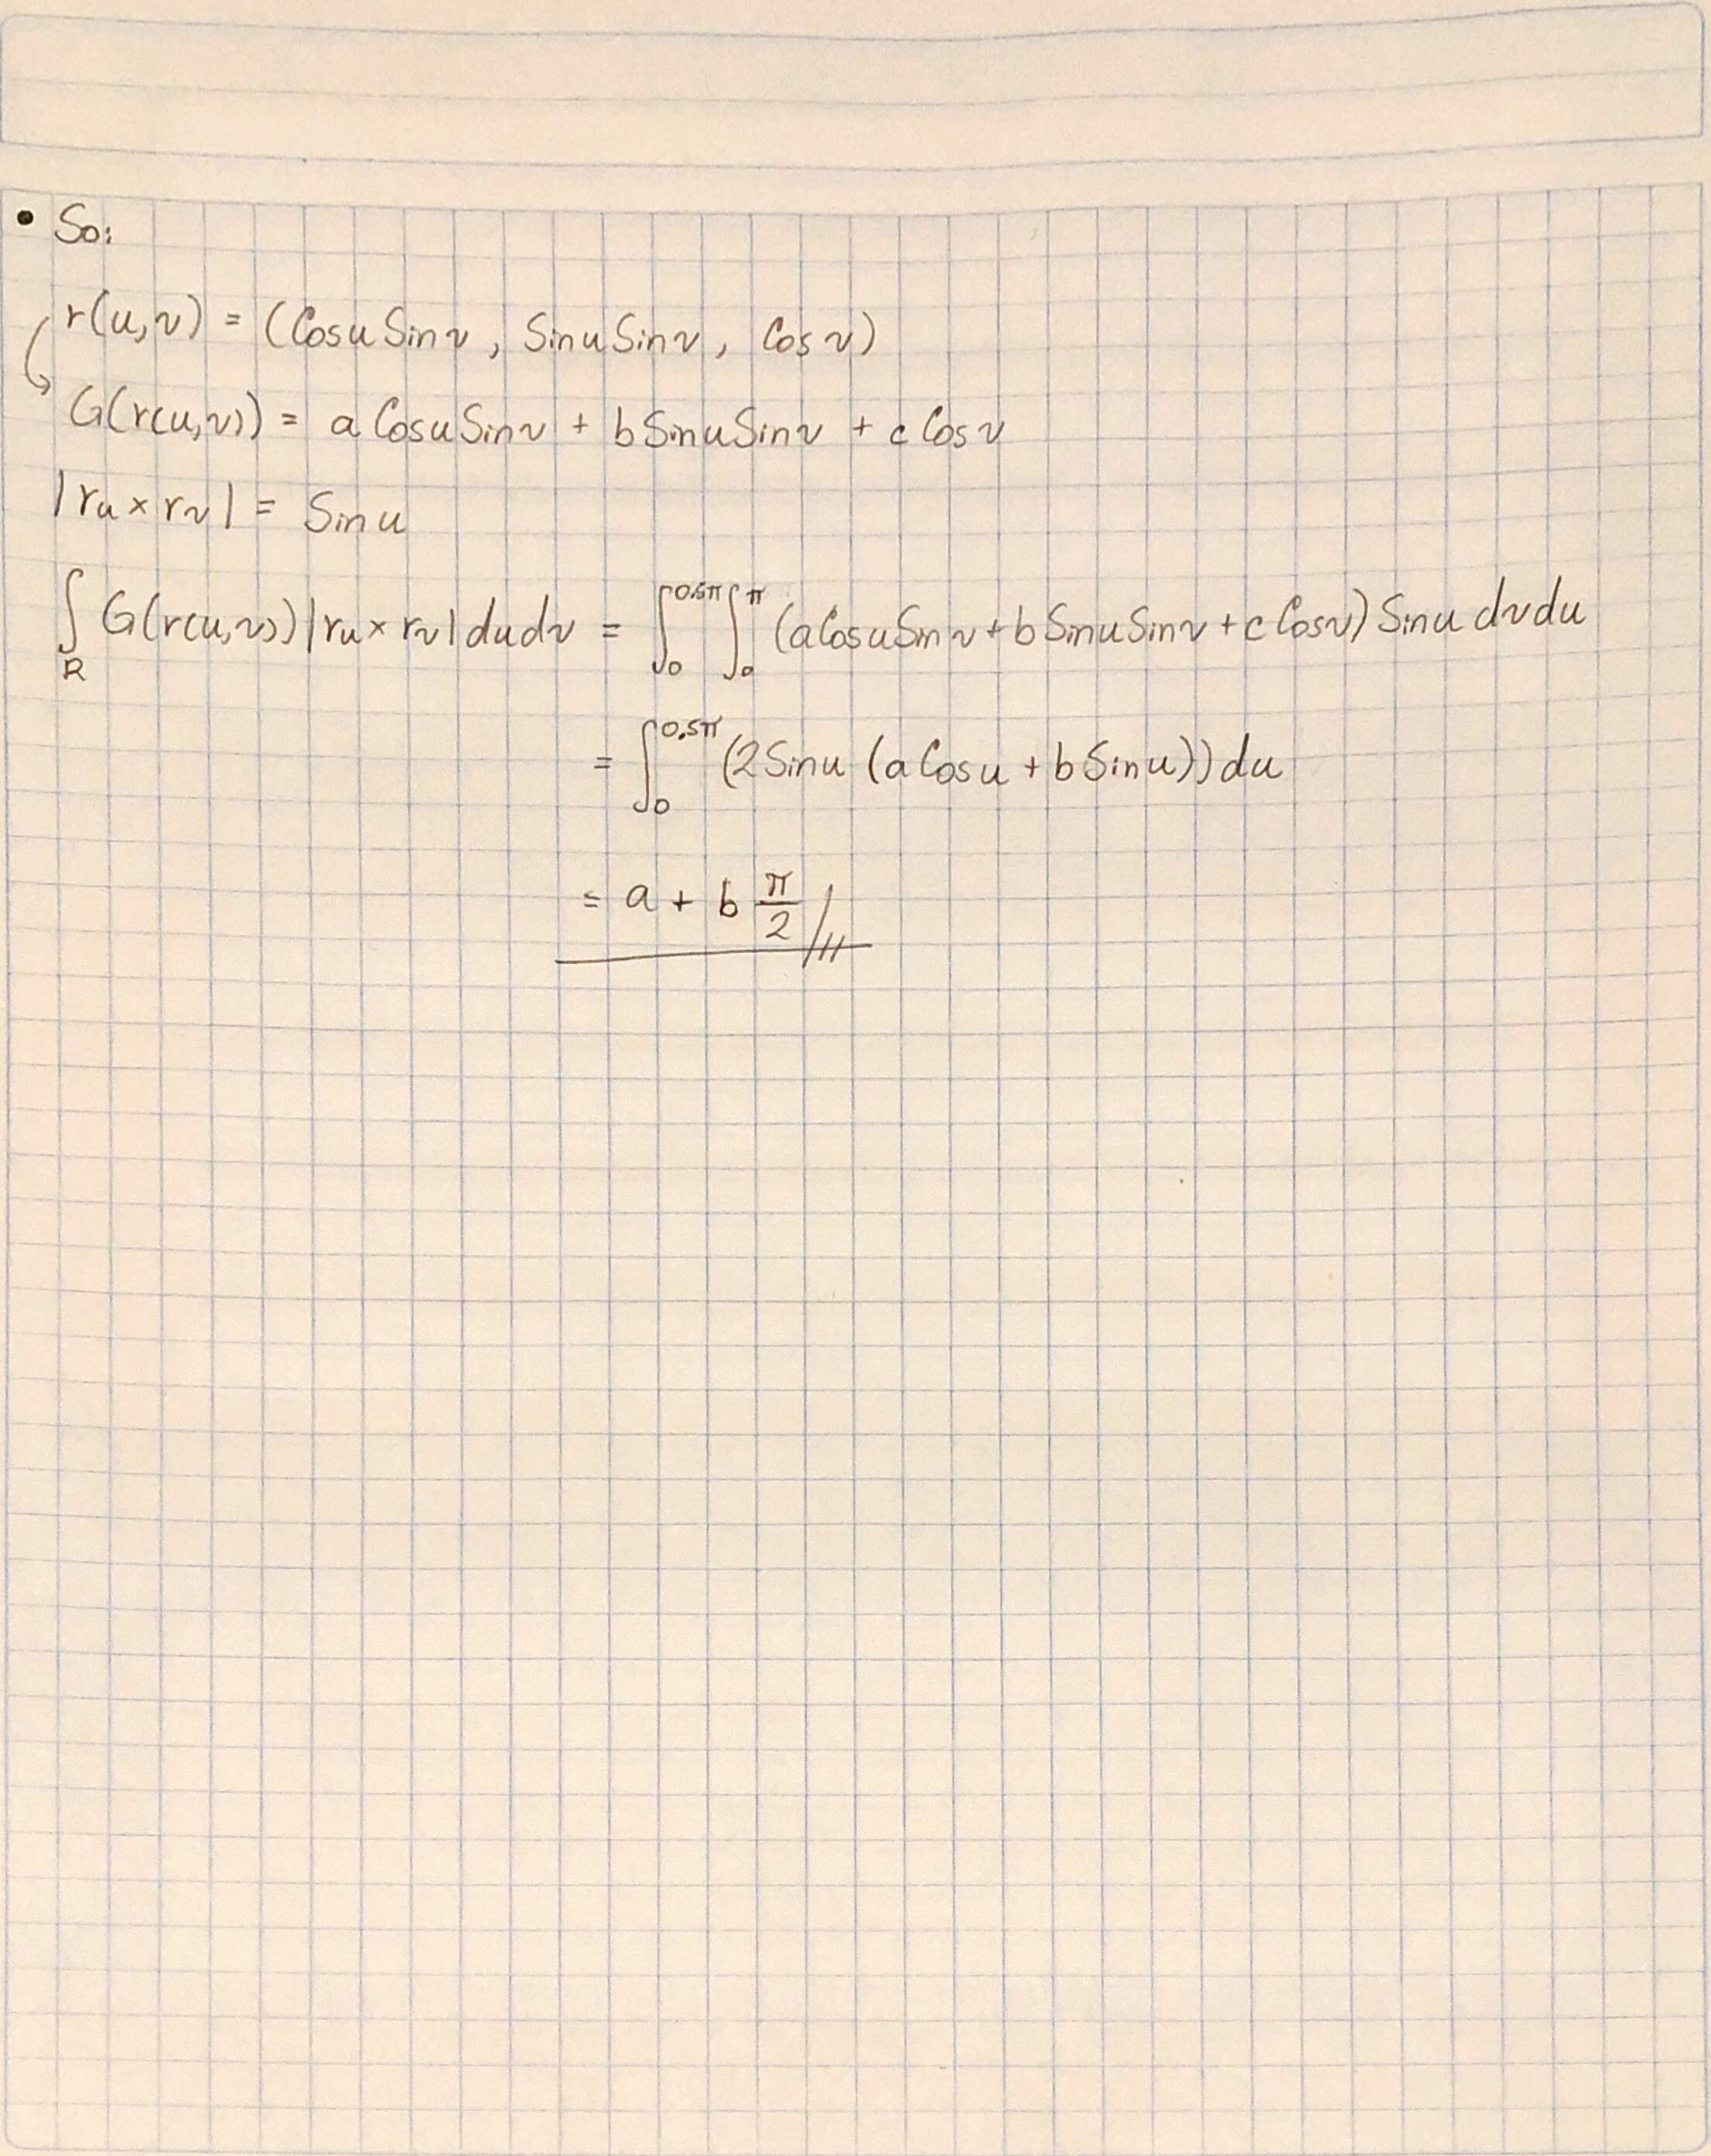 • So:
r(u,v) = (Cosu Sinv, Sinu Sinv, Cos v)
G(r(u,v)) = a Cosu Sinv + b Sinu Sinv + c Cos v
|ru × rv| = Sin u
∫R G(r(u,v)) |ru × rv| du dv = ∫₀^0.5π ∫₀^π (a Cosu Sinv + b Sinu Sinv + c Cosv) Sinu dv du
= ∫₀^0.5π (2 Sinu (a Cosu + b Sinu)) du
= a + b π/2 //